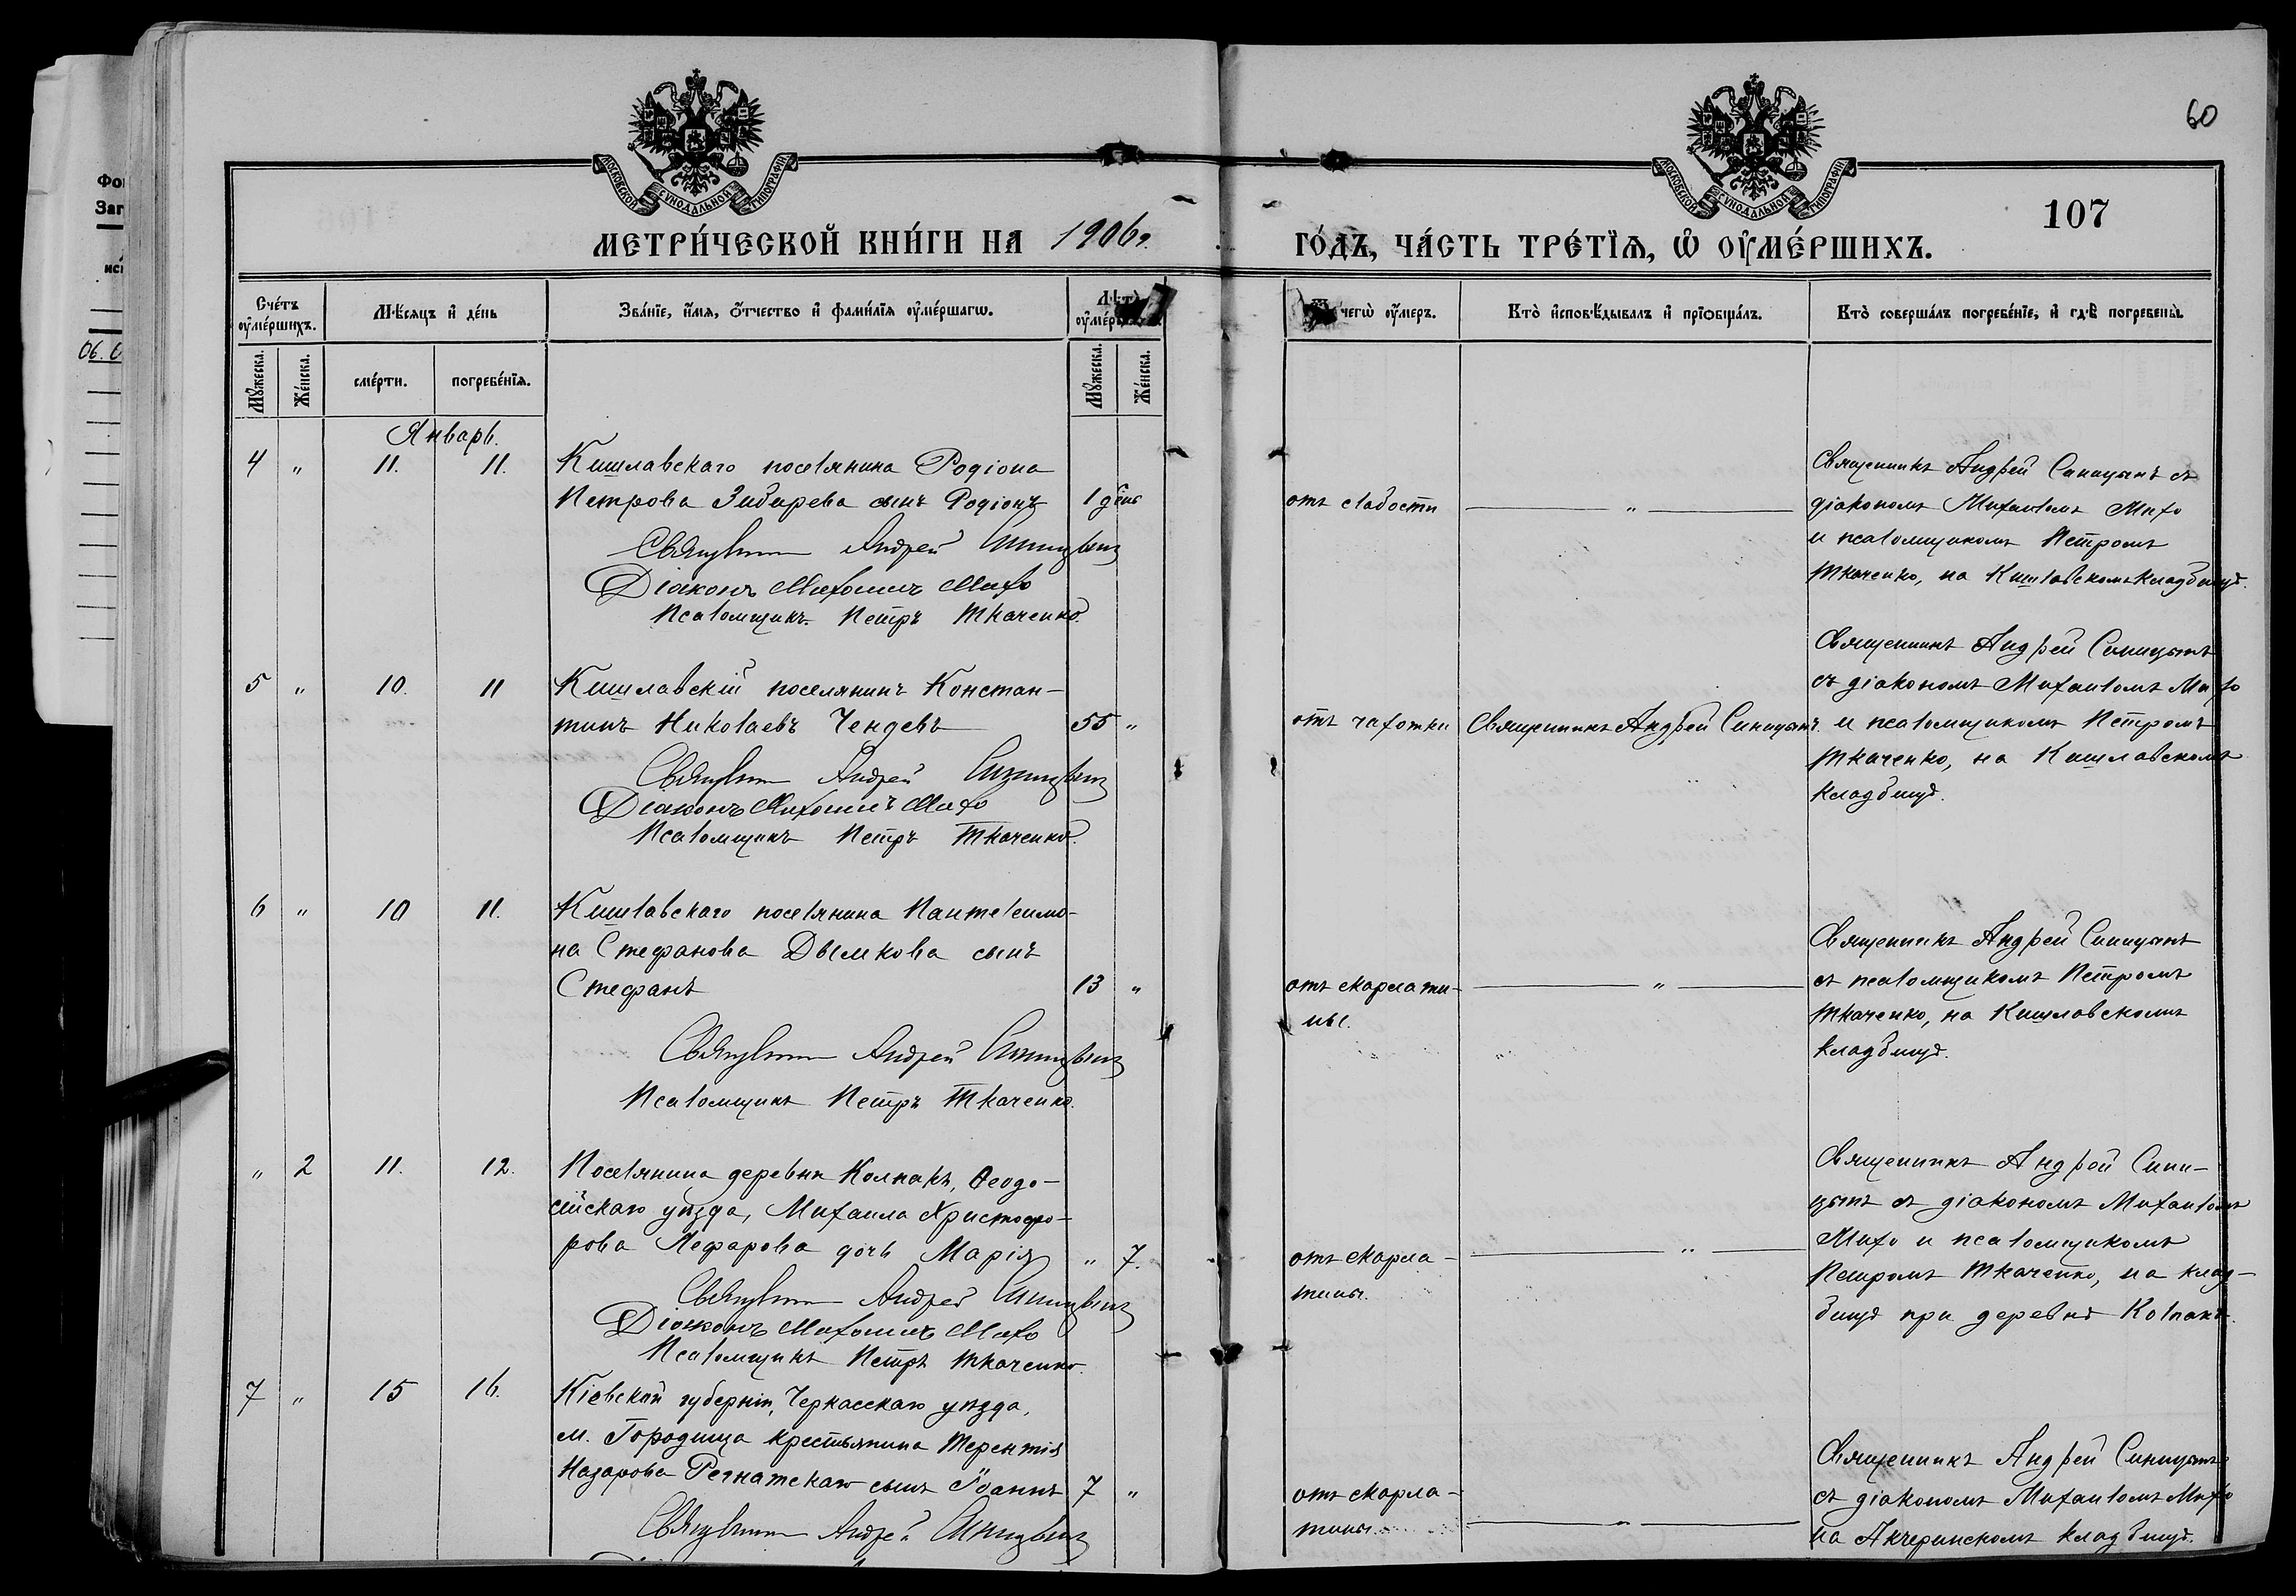 60
МОСКОВСКОЙ СУНОДАЛЬНОЙ ТИПОГРАФІИ
МОСКОВСКОЙ СУНОДАЛЬНОЙ ТИПОГРАФІИ
107
МЕТРИ́ЧЕСКОЙ КНИ́ГИ НА 1906 г. ГО́ДЪ, ЧА́СТЬ ТРЕ́ТІѦ, Ѡ҆ ОУ҆МЕ́РШИХЪ.
Сче́тъ оу҆ме́ршихъ.
Мꙋ́жеска.
Же́нска.
Мѣ́сяцъ и҆ де́нь
сме́рти.
погребе́нїя.
Зва́нїе, и҆́мя, ѻ҆́тчество и҆ фами́лїя оу҆ме́ршагѡ.
Мꙋ́жеска.
Же́нска.
чегѡ̀ оу҆́меръ.
Кто̀ и҆сповѣ́дывалъ и҆ прїѻбща́лъ.
Кто̀ соверша́лъ погребе́нїе, и҆ гдѣ̀ погребены̀.
Январь.
4 " 11. 11.
Кишлавскаго поселянина Родіона
Петрова Зибирева сынъ Родіонъ 1 день
Священникъ Андрей Синицынъ
Діаконъ Михаилъ Михо
Псаломщикъ Петръ Ткаченко.
отъ слабости "
Священникъ Андрей Синицынъ съ
діакономъ Михаиломъ Михо
и псаломщикомъ Петромъ
Ткаченко, на Кишлавскомъ кладбищѣ.
5 " 10. 11
Кишлавскій поселянинъ Констан-
тинъ Николаевъ Чендевъ 55 "
Священникъ Андрей Синицынъ
Діаконъ Михаилъ Михо
Псаломщикъ Петръ Ткаченко.
отъ чахотки
Священникъ Андрей Синицынъ.
Священникъ Андрей Синицынъ
съ діакономъ Михаиломъ Михо
и псаломщикомъ Петромъ
Ткаченко, на Кишлавскомъ
кладбищѣ.
6 " 10 11.
Кишлавскаго поселянина Пантелеимо-
на Стефанова Дымкова сынъ
Стефанъ 13 "
Священникъ Андрей Синицынъ
Псаломщикъ Петръ Ткаченко.
отъ скарлати-
ны. "
Священникъ Андрей Синицынъ
съ псаломщикомъ Петромъ
Ткаченко, на Кишлавскомъ
кладбищѣ.
" 2 11. 12.
Поселянина деревни Колпакъ, Ѳеодо-
сійскаго уѣзда, Михаила Христофо-
рова дочь Марія " 7.
Священникъ Андрей Синицынъ
Діаконъ Михаилъ Михо
Псаломщикъ Петръ Ткаченко.
отъ скарла-
тины. "
Священникъ Андрей Сини-
цынъ съ діакономъ Михаиломъ
Михо и псаломщикомъ
Петромъ Ткаченко, на клад-
бищѣ при деревнѣ Колпакъ.
7 " 15 16.
Кіевской губерніи, Черкасскаго уѣзда,
м. Городища крестьянина Терентія
Назарова сынъ Іоаннъ 7 "
Священникъ Андрей Синицынъ
отъ скарла-
тины.
Священникъ Андрей Синицынъ
съ діакономъ Михаиломъ Михо
на Акчеринскомъ кладбищѣ.